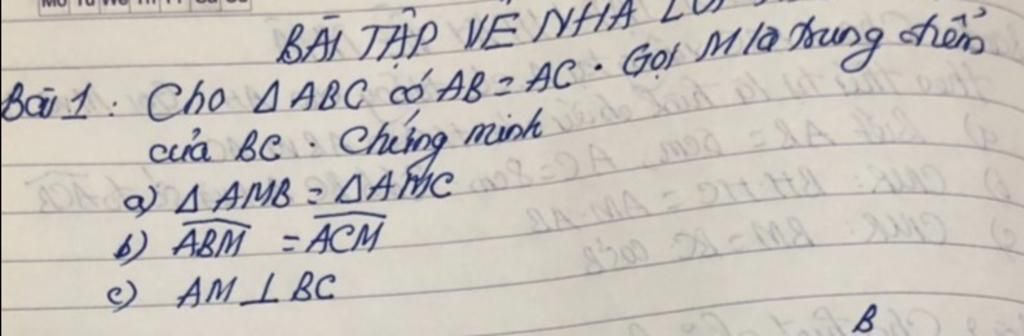 BÀI TẬP VỀ NHÀ
Bài 1: Cho Δ ABC có AB = AC. Gọi M là trung điểm
của BC. Chứng minh
a) Δ AMB = Δ AMC
b) \widehat{ABM} = \widehat{ACM}
c) AM ⊥ BC
B